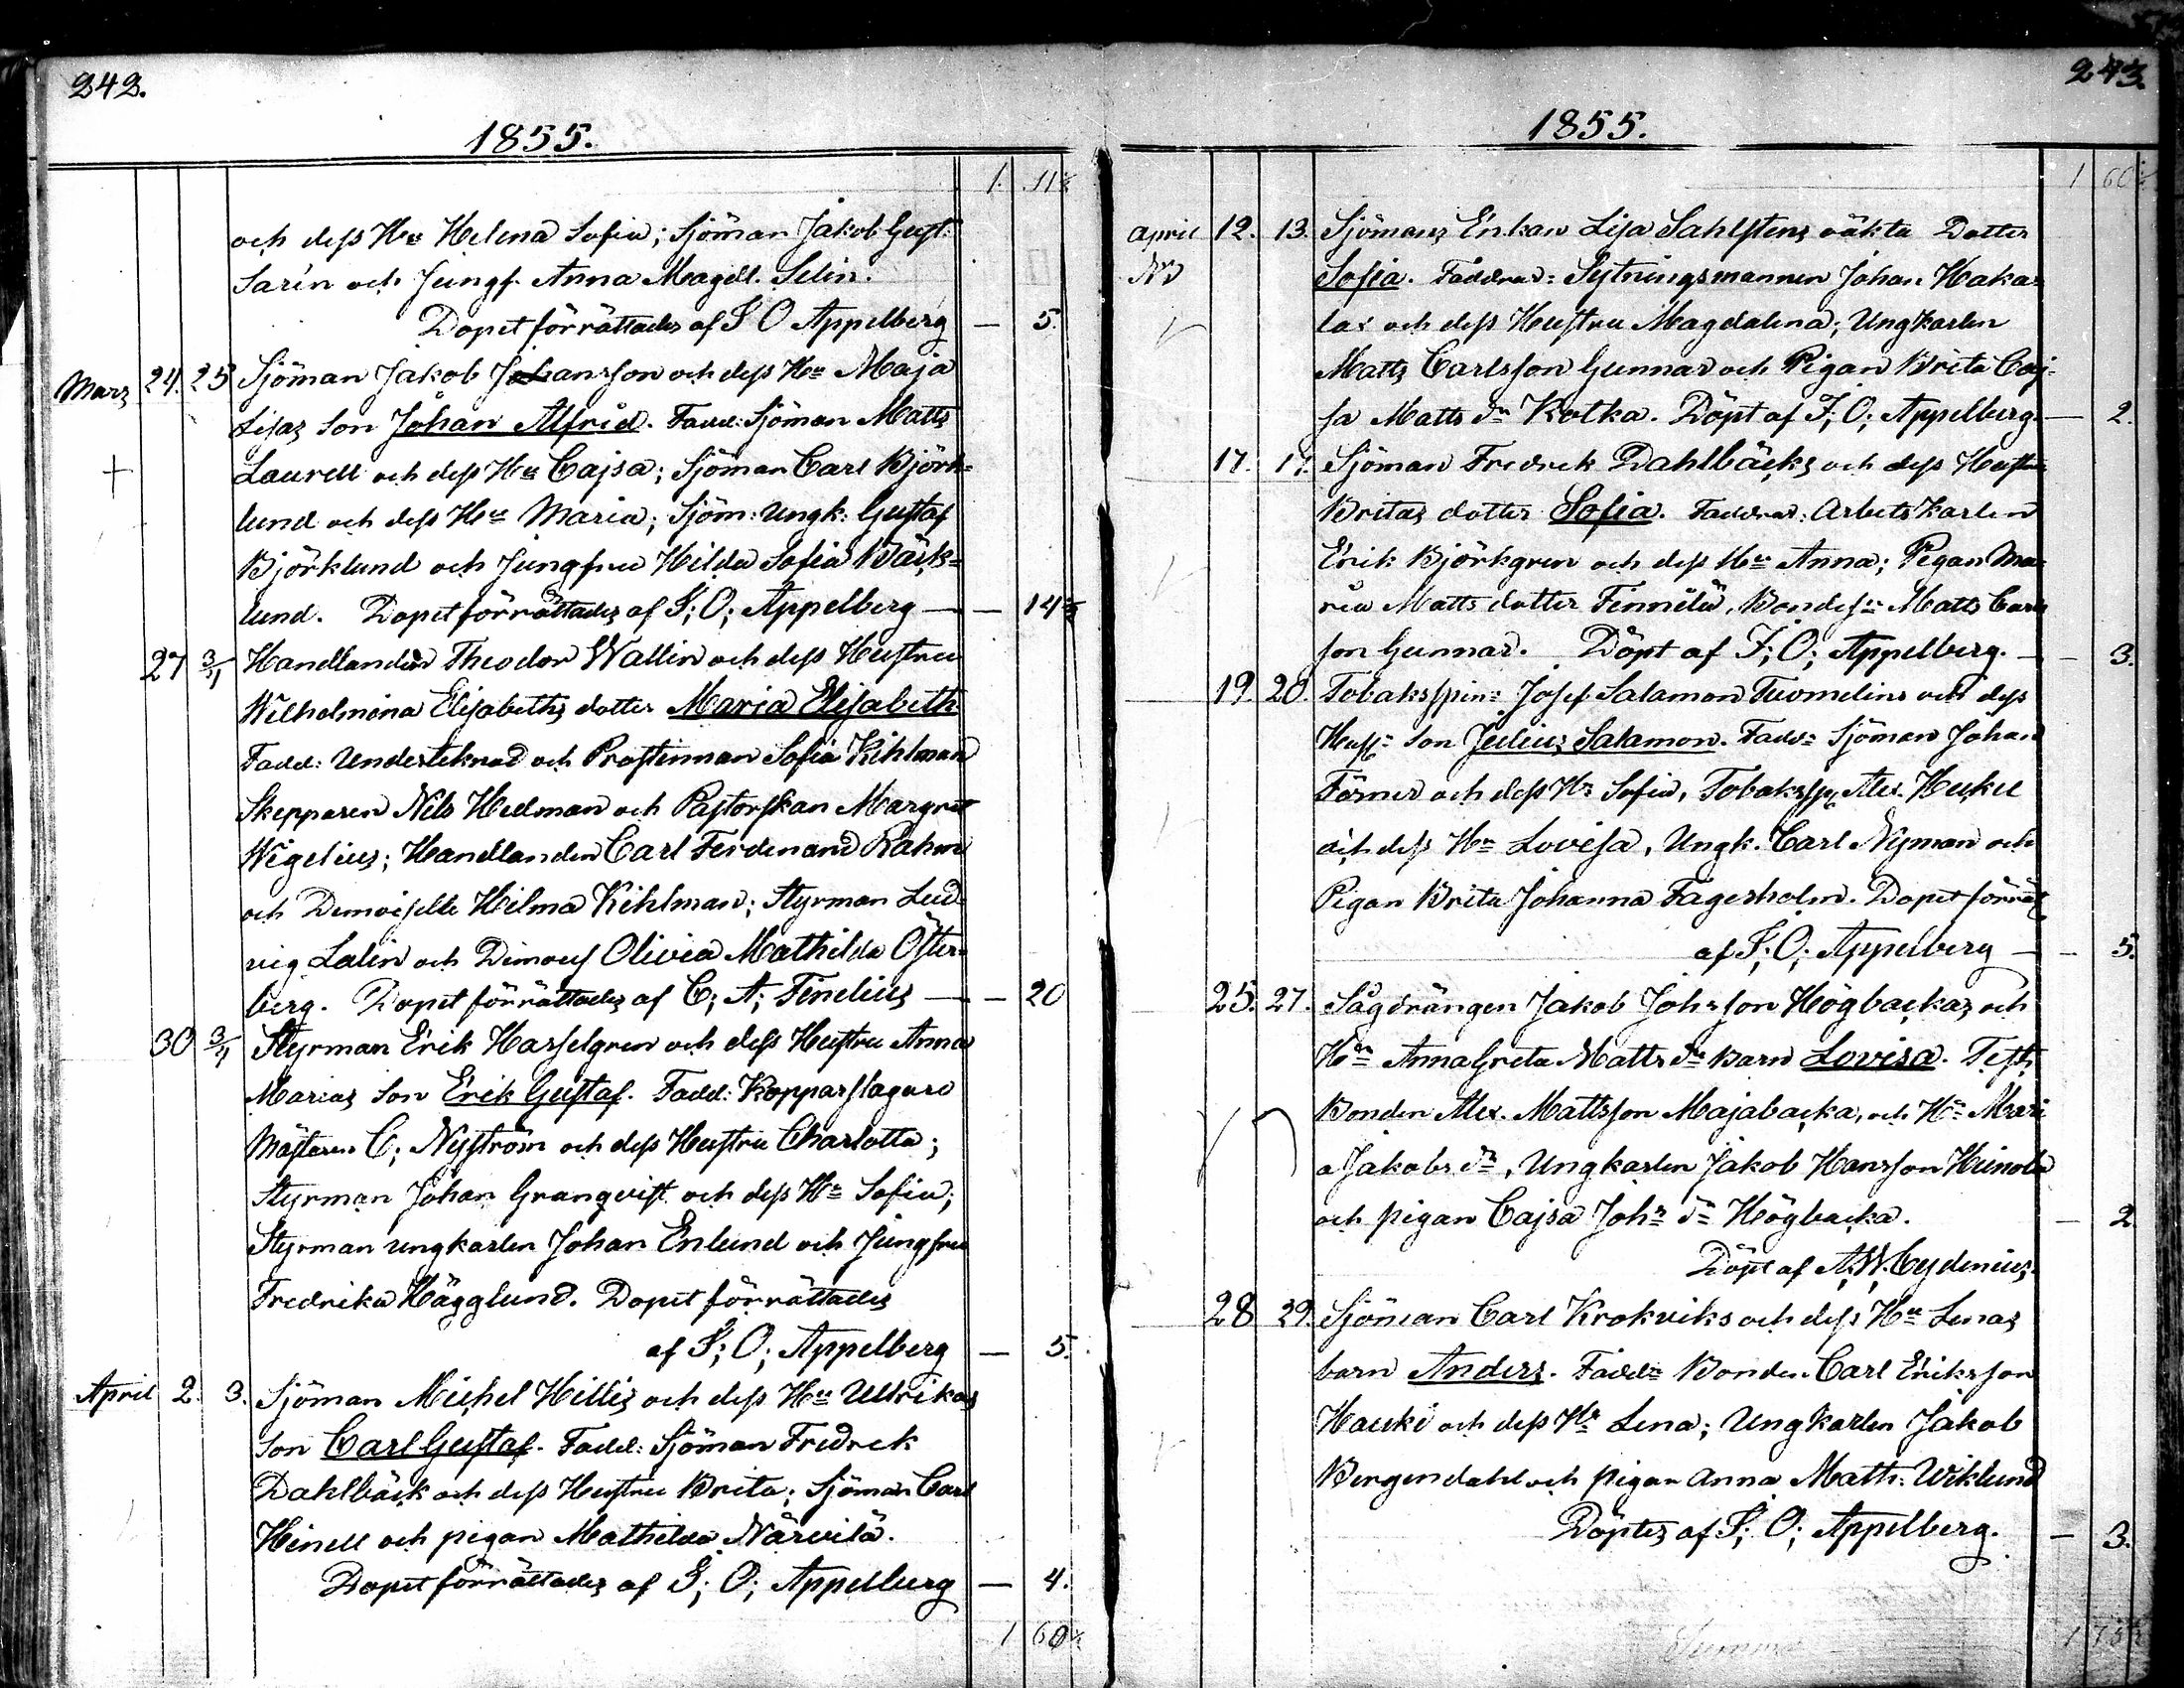 242.
1855.
1. 11½
och dess Hu Helena Sofia; Sjöman Jakob Gust.
Sarin och Jungf. Anna Magdl. Selin.
Dopet förrättades af I O Appelberg — 5.
Mars 24. 25 Sjöman Jakob Johansson och dess Hu Maja
Lisas son Johan Alfrid. Fadd: Sjöman Matts
Laurell och dess Hu Cajsa; Sjöman Carl Björk=
lund och dess Hu Maria; Sjöm: Ungk: Gustaf
Björklund och Jungfru Hilda Sofia Bäck=
lund. Dopet förrättades af I; O; Appelberg — — 14½
27 3/1 Handlanden Theodor Wallin och dess Hustru
Wilhelmina Elisabeths dotter Maria Elisabeth
Fadd: Underteknad och Prostinnan Sofia Kihlman
Skepparen Nils Hedman och Pastorskan Margret
Wigelius; Handlanden Carl Ferdinand Rahm
och Demoiselle Hilma Kihlman; Styrman Lud=
vig Lalin och Demois Olivia Mathilda Öster=
berg. Dopet förrättades af C; A; Finelius — — 20
30 3/4 Styrman Erik Hasselgren och dess Hustru Anna
Marias son Erik Gustaf. Fadd: Kopparslagare
Mästaren C; Nyström och dess Hustru Charlotta;
Styrman Johan Granqvist och dess Hu Sofia;
Styrman ungkarlen Johan Enlund och Jungfru
Fredrika Hägglund. Dopet förrättades
af I; O; Appelberg — 5.
April 2. 3. Sjöman Michel Hillis och dess Hu Ullrikas
son Carl Gustaf. Fadd: Sjöman Fredrek
Dahlbäck och dess Hustru Brita; Sjöman Carl
Heinell och pigan Mathilda Närvilä.
Dopet förrättades af I; O; Appelberg — 4.
1 60½
243.
1855.
1 60½
April 12. 13. Sjömans Enkan Lisa Sahlstens oäkta Dotter
Sofia. Faddrar: Sytningsmannen Johan Haka=
lax och dess Hustru Magdalena; Ungkarlen
Matts Carlsson Gunnar och Pigan Brita Caj=
sa Matts dr Kotka. Döpt af I; O; Appelberg. — 2.
17. 17. Sjöman Fredrek Dahlbäcks och dess Hustru
Britas dotter Sofia. Faddrar: Arbets Karlen
Erik Björkgren och dess Hu Anna; Pigan Ma=
ria Matts dotter Finnilä, Bondes: Matts Carls
son Gunnar. Döpt af I; O; Appelberg. — — 3.
19. 20. Tobaksspin: Josef Salamon Tuomelins och dess
Hust: son Julius Salamon. Fadd: Sjöman Johan
Förner och dess Hu Sofia, Tobakssp. Alex. Heikel
och dess Hu Lovisa, Ungk. Carl Nyman och
Pigan Brita Johanna Fagerholm. Dopet förrät
af I; O; Appelberg — — 5.
25. 27. Sågdrängen Jakob Johsson Högbackas och
Hu Anna Greta Matts dr Barn Lovisa. Test.
Bonden Alex. Mattsson Majabacka, och Hu Mari
a Jakobs dr, Ungkarlen Jakob Hansson Heinola
och pigan Cajsa Johs dr Högbacka. — 2
Döpt af A. W. Cydenius.
28 29. Sjöman Carl Krokviks och dess Hu Lenas
barn Anders. Fadd: Bonden Carl Eriksson
Hauki och dess Hu Lena; Ungkarlen Jakob
Bergendahl och pigan Anna Math: Wiklund
Döptes af I; O; Appelberg. — 3.
Summa
1 75½